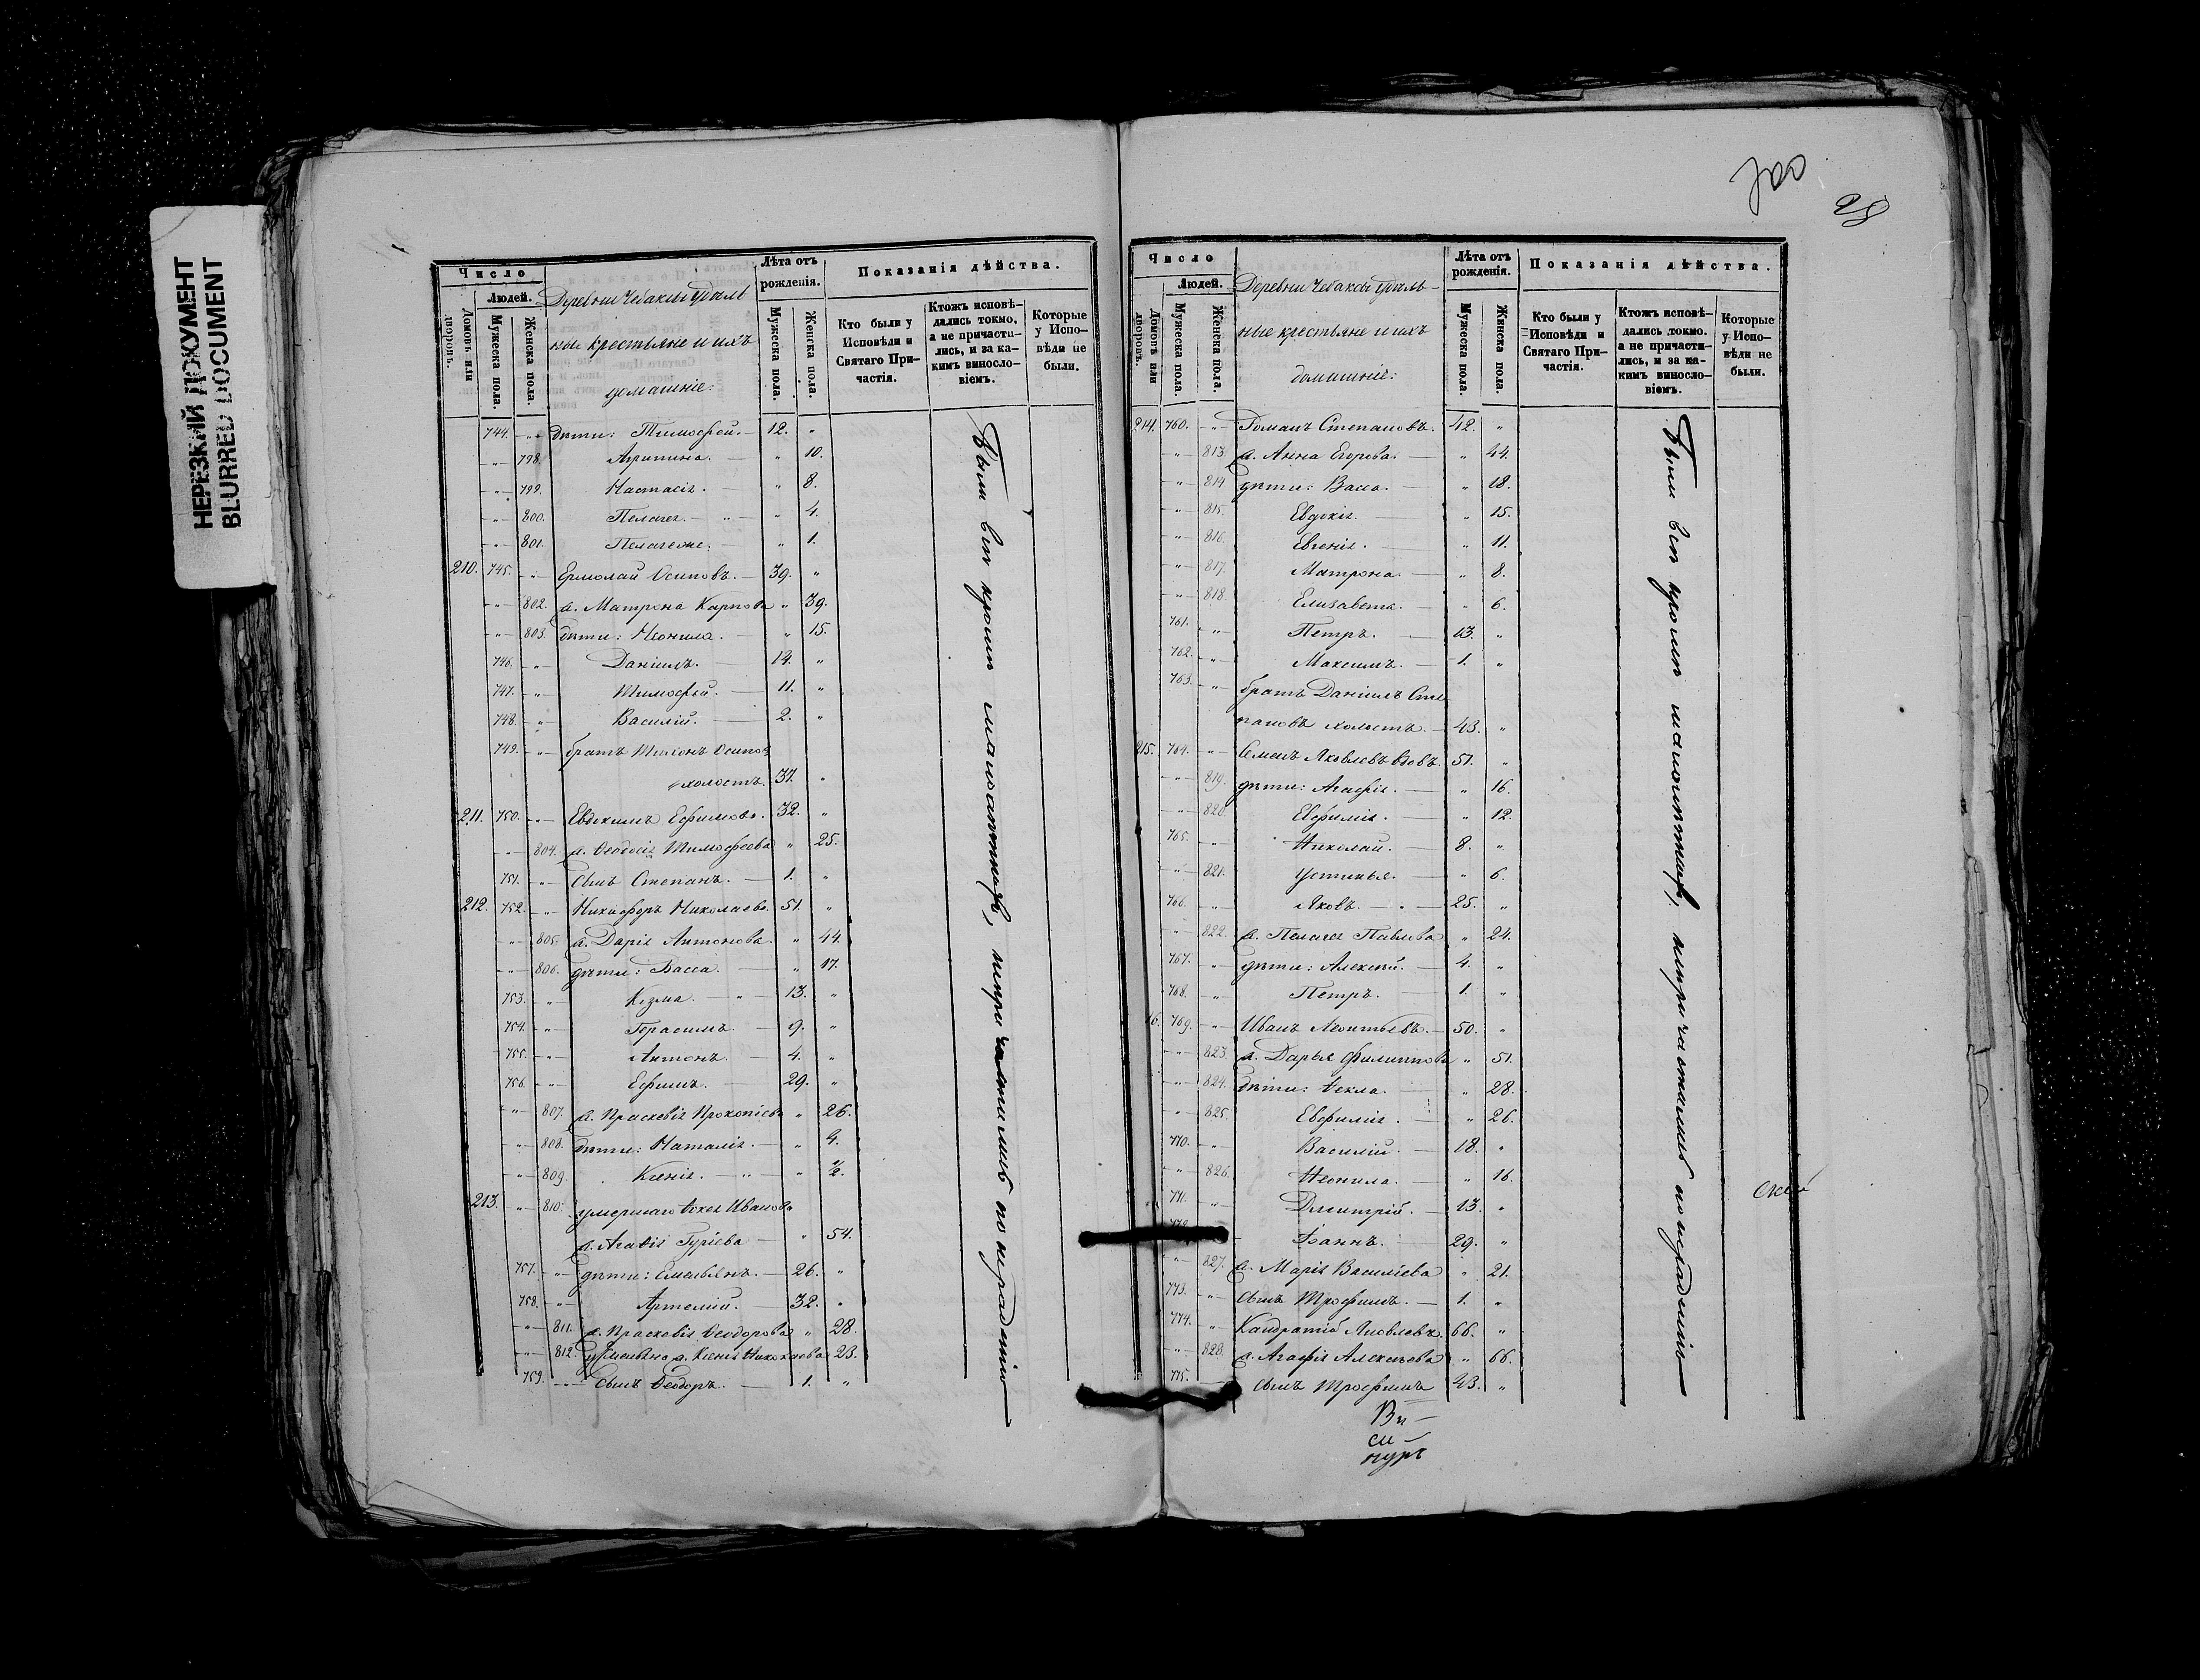 НЕРЕЗКИЙ ДОКУМЕНТ
BLURRED DOCUMENT
Число
Людей.
Домовъ или дворовъ.
Мужеска пола.
Женска пола.
Деревни Чебаксы удѣль
ные крестьяне и ихъ
домашніе:
Лѣта отъ рожденія.
Мужеска пола.
Женска пола.
Показанія дѣйства.
Кто были у Исповѣди и Святаго Причастія.
Ктожъ исповѣдались токмо, а не причастились, и за какимъ винословіемъ.
Которые у Исповѣди не были.
744. дѣти: Тимофей. 12. "
" 798. Агрипина. " 10.
" 799. Настасія. " 8.
" 800. Пелагея. " 4.
" 801. " 1.
210. 745. " Ермолай Осиповъ. 39. "
" 802. ж. Матрона Карпова " 39.
" 803. дѣти: Неонила. " 15.
746. " Даніилъ. 14. "
747. " Тимофей. 11. "
748. " Василій. 2. "
749. " братъ Осиповъ
холостъ. 37. "
211. 750. " Евдокимъ Ефимовъ. 32. "
" 804. ж. Ѳеодосія Тимофеева " 25.
751. " сынъ Степанъ. 1. "
212. 752. " Никифоръ Николаевъ. 51. "
" 805. ж. Дарія Антонова. " 44.
" 806. дѣти: Васса. " 17.
753. " Козма. 13. "
754. " Герасимъ. 9. "
755. " Антонъ. 4. "
756. " Ефимъ. 29. "
" 807. ж. Праскевія Прокопіева " 26.
" 808. дѣти: Наталія. " 4.
" 809. Ксенія. " ½.
213. " 810. умершаго Иванова
ж. Агавія Гуріева " 54.
757. " дѣти: Емельянъ. 26. "
758. " Артемій. 32. "
" 811. ж. Праскевія Ѳеодорова " 28.
" 812. у Емельяна ж. Ксенія Николаева 23.
759. сынъ Ѳеодоръ. 1. "
Были всѣ кромѣ малолѣтковъ, непричастились по нерадѣнію
28
Число
Людей.
Домовъ или дворовъ.
Мужеска пола.
Женска пола.
Деревни Чебаксы удѣль-
ные крестьяне и ихъ
домашніе:
Лѣта отъ рожденія.
Мужеска пола.
Женска пола.
Показанія дѣйства.
Кто были у Исповѣди и Святаго Причастія.
Ктожъ исповѣдались токмо, а не причастились, и за какимъ винословіемъ.
Которые у Исповѣди не были.
214. 760. " Романъ Степановъ. 42. "
" 813. ж. Анна Егорова. " 44.
" 814. дѣти: Васса. " 18.
" 815. Евдокія. " 15.
" 816. Евгенія. " 11.
" 817. Матрона. " 8.
" 818. Елизавета. " 6.
761. " Петръ. 13. "
762. " Максимъ. 1. "
763. " братъ Даніилъ Сте
пановъ холостъ. 43. "
215. 764. " Семенъ Яковлевъ вдовъ. 51. "
" 819. дѣти: Агафія. " 16.
" 820. Евфимія. " 12.
765. " Николай. 8. "
" 821. Устинья. " 6.
766. " Яковъ. 25. "
" 822. ж. Пелагея Павлова " 24.
767. " дѣти: Алексѣй. 4. "
768. " Петръ. 1. "
16. 769. " Иванъ Леонтьевъ. 50. "
" 823. ж. Дарья Филиппова " 51.
" 824. дѣти: Ѳекла. " 28.
" 825. Евфимія. " 26.
770. " Василій. 18. "
" 826. Неонила. " 16.
771. " Димитрій. 13. "
772. Іоаннъ. 29. "
" 827. ж. Марія Василіева " 21.
773. " сынъ Трофимъ. 1. "
774. " Кандратій Яковлевъ. 66. "
" 828. ж. Агафія Алексѣева " 66.
775. сынъ Трофимъ 43. "
Были всѣ кромѣ малолѣтковъ, непричастились по нерадѣнію